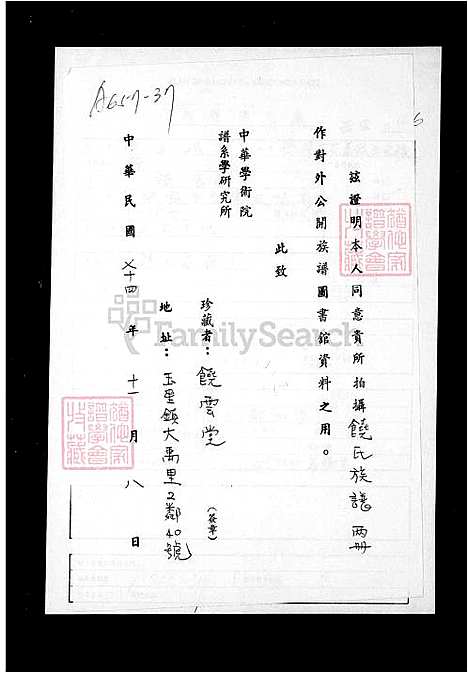 A657-37
6
茲證明本人同意貴所拍攝饒氏族譜兩冊
作對外公開族譜圖書館資料之用。
此致
中華學術院
譜系學研究所
珍藏者：饒雲堂（簽章）
地址：玉里鎮大禹里2鄰40號
中華民國 七十四 年 十一 月 八 日
FamilySearch